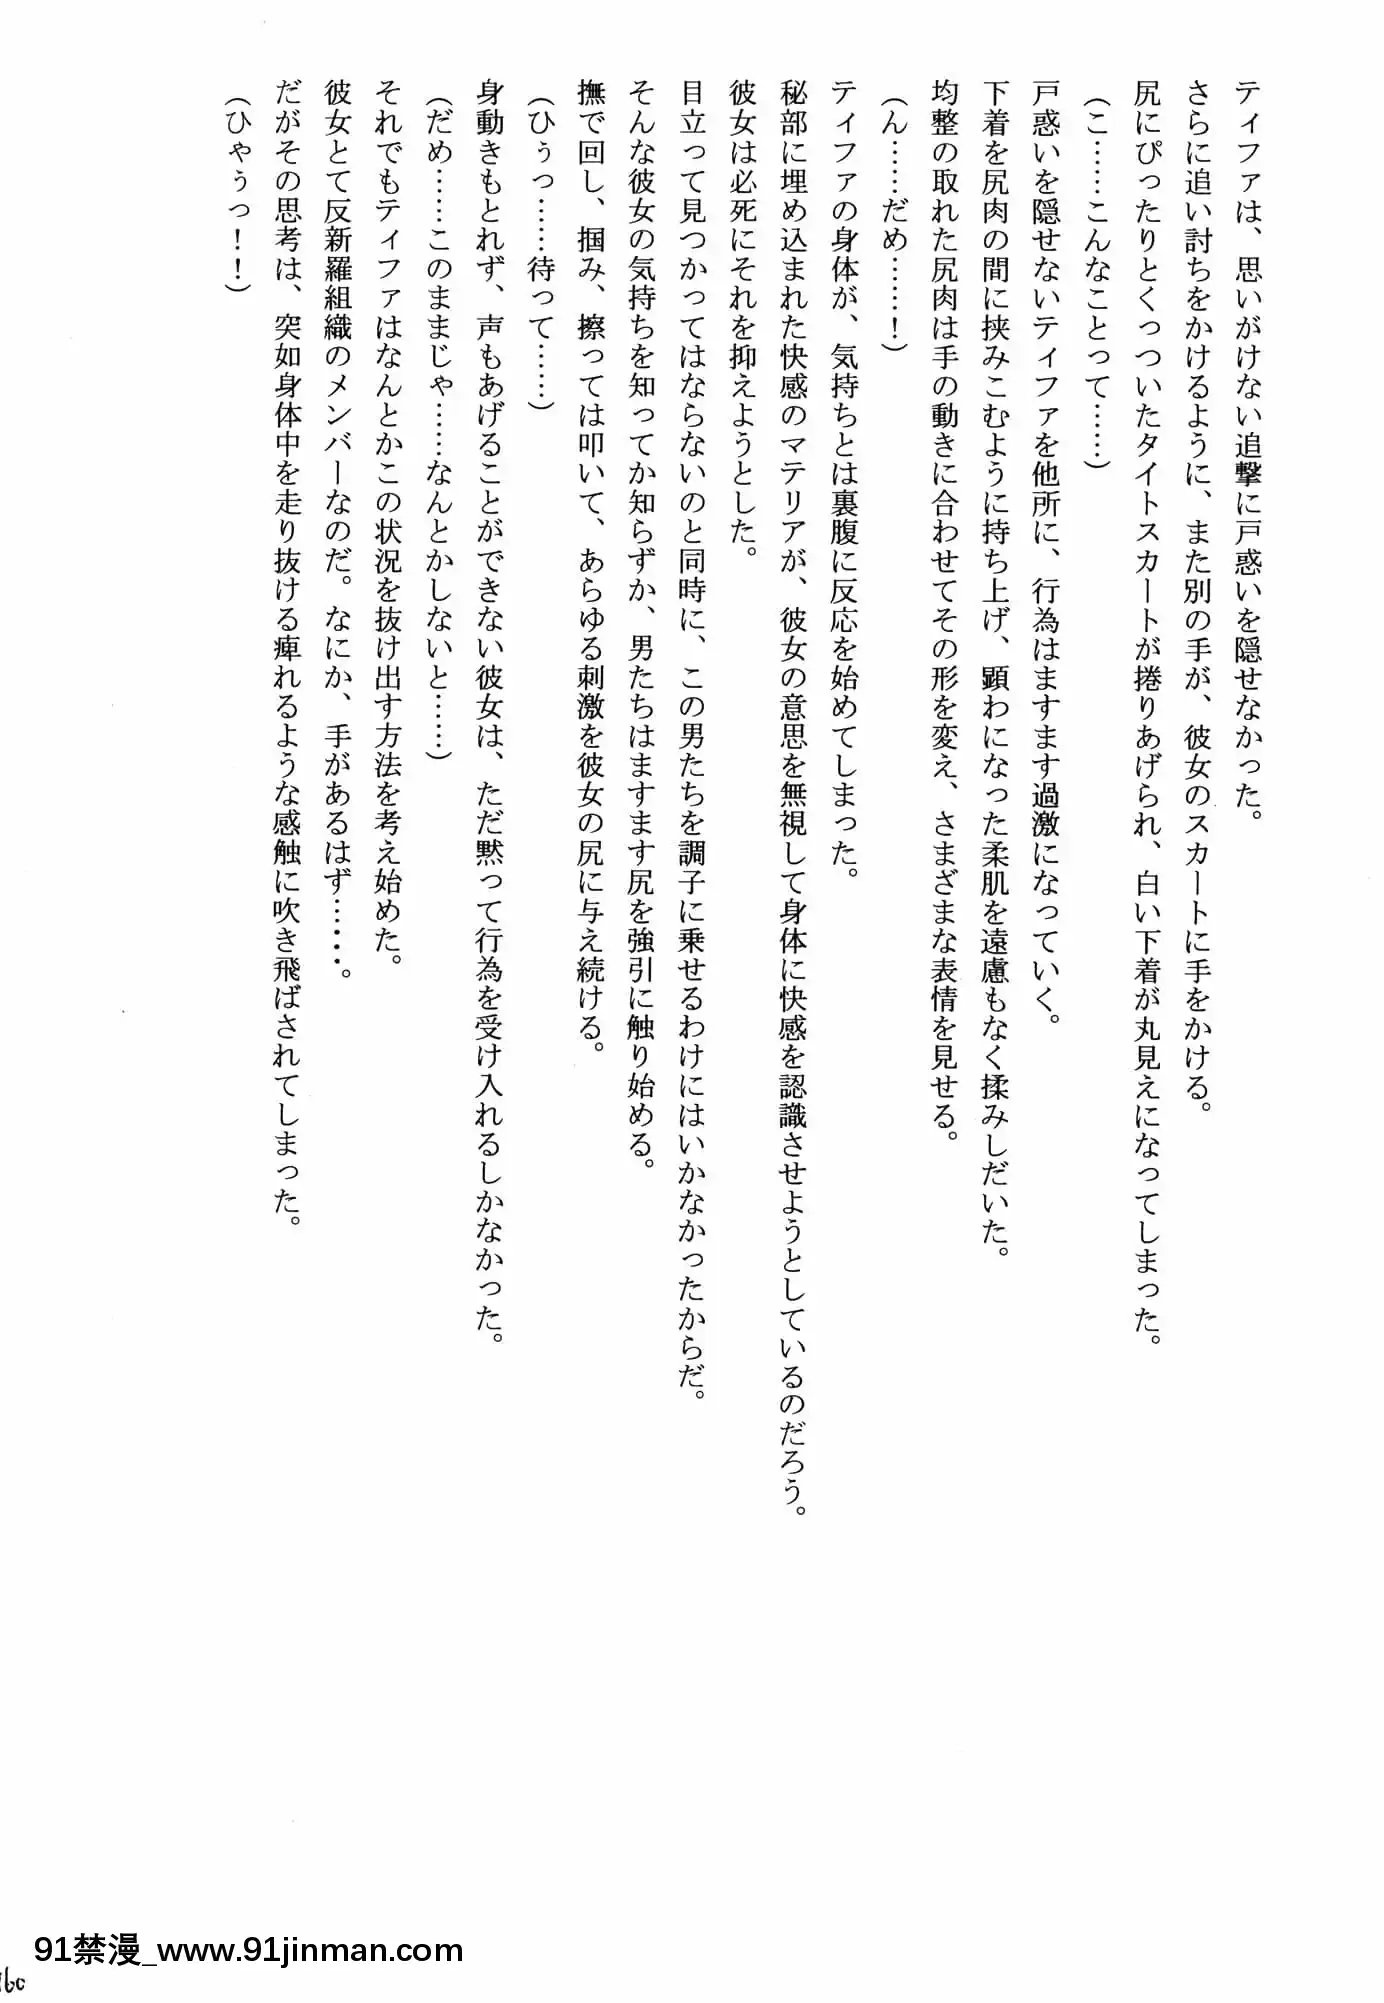 ティファは、思いがけない追撃に戸惑いを隠せなかった。
さらに追い討ちをかけるように、また別の手が、彼女のスカートに手をかける。
尻にぴったりとくっついたタイトスカートが捲りあげられ、白い下着が丸見えになってしまった。
（こ……こんなことって……）
戸惑いを隠せないティファを他所に、行為はますます過激になっていく。
下着を尻肉の間に挟みこむように持ち上げ、顕わになった柔肌を遠慮もなく揉みしだいた。
均整の取れた尻肉は手の動きに合わせてその形を変え、さまざまな表情を見せる。
（ん……だめ……！）
ティファの身体が、気持ちとは裏腹に反応を始めてしまった。
秘部に埋め込まれた快感のマテリアが、彼女の意思を無視して身体に快感を認識させようとしているのだろう。
彼女は必死にそれを抑えようとした。
目立って見つかってはならないのと同時に、この男たちを調子に乗せるわけにはいかなかったからだ。
そんな彼女の気持ちを知ってか知らずか、男たちはますます尻を強引に触り始める。
撫で回し、掴み、擦っては叩いて、あらゆる刺激を彼女の尻に与え続ける。
（ひぅっ……待って……）
身動きもとれず、声もあげることができない彼女は、ただ黙って行為を受け入れるしかなかった。
（だめ……このままじゃ……なんとかしないと……）
それでもティファはなんとかこの状況を抜け出す方法を考え始めた。
彼女とて反新羅組織のメンバーなのだ。なにか、手があるはず……。
だがその思考は、突如身体中を走り抜ける痺れるような感触に吹き飛ばされてしまった。
（ひゃぅっ！！）
91禁漫_www.91jinman.com